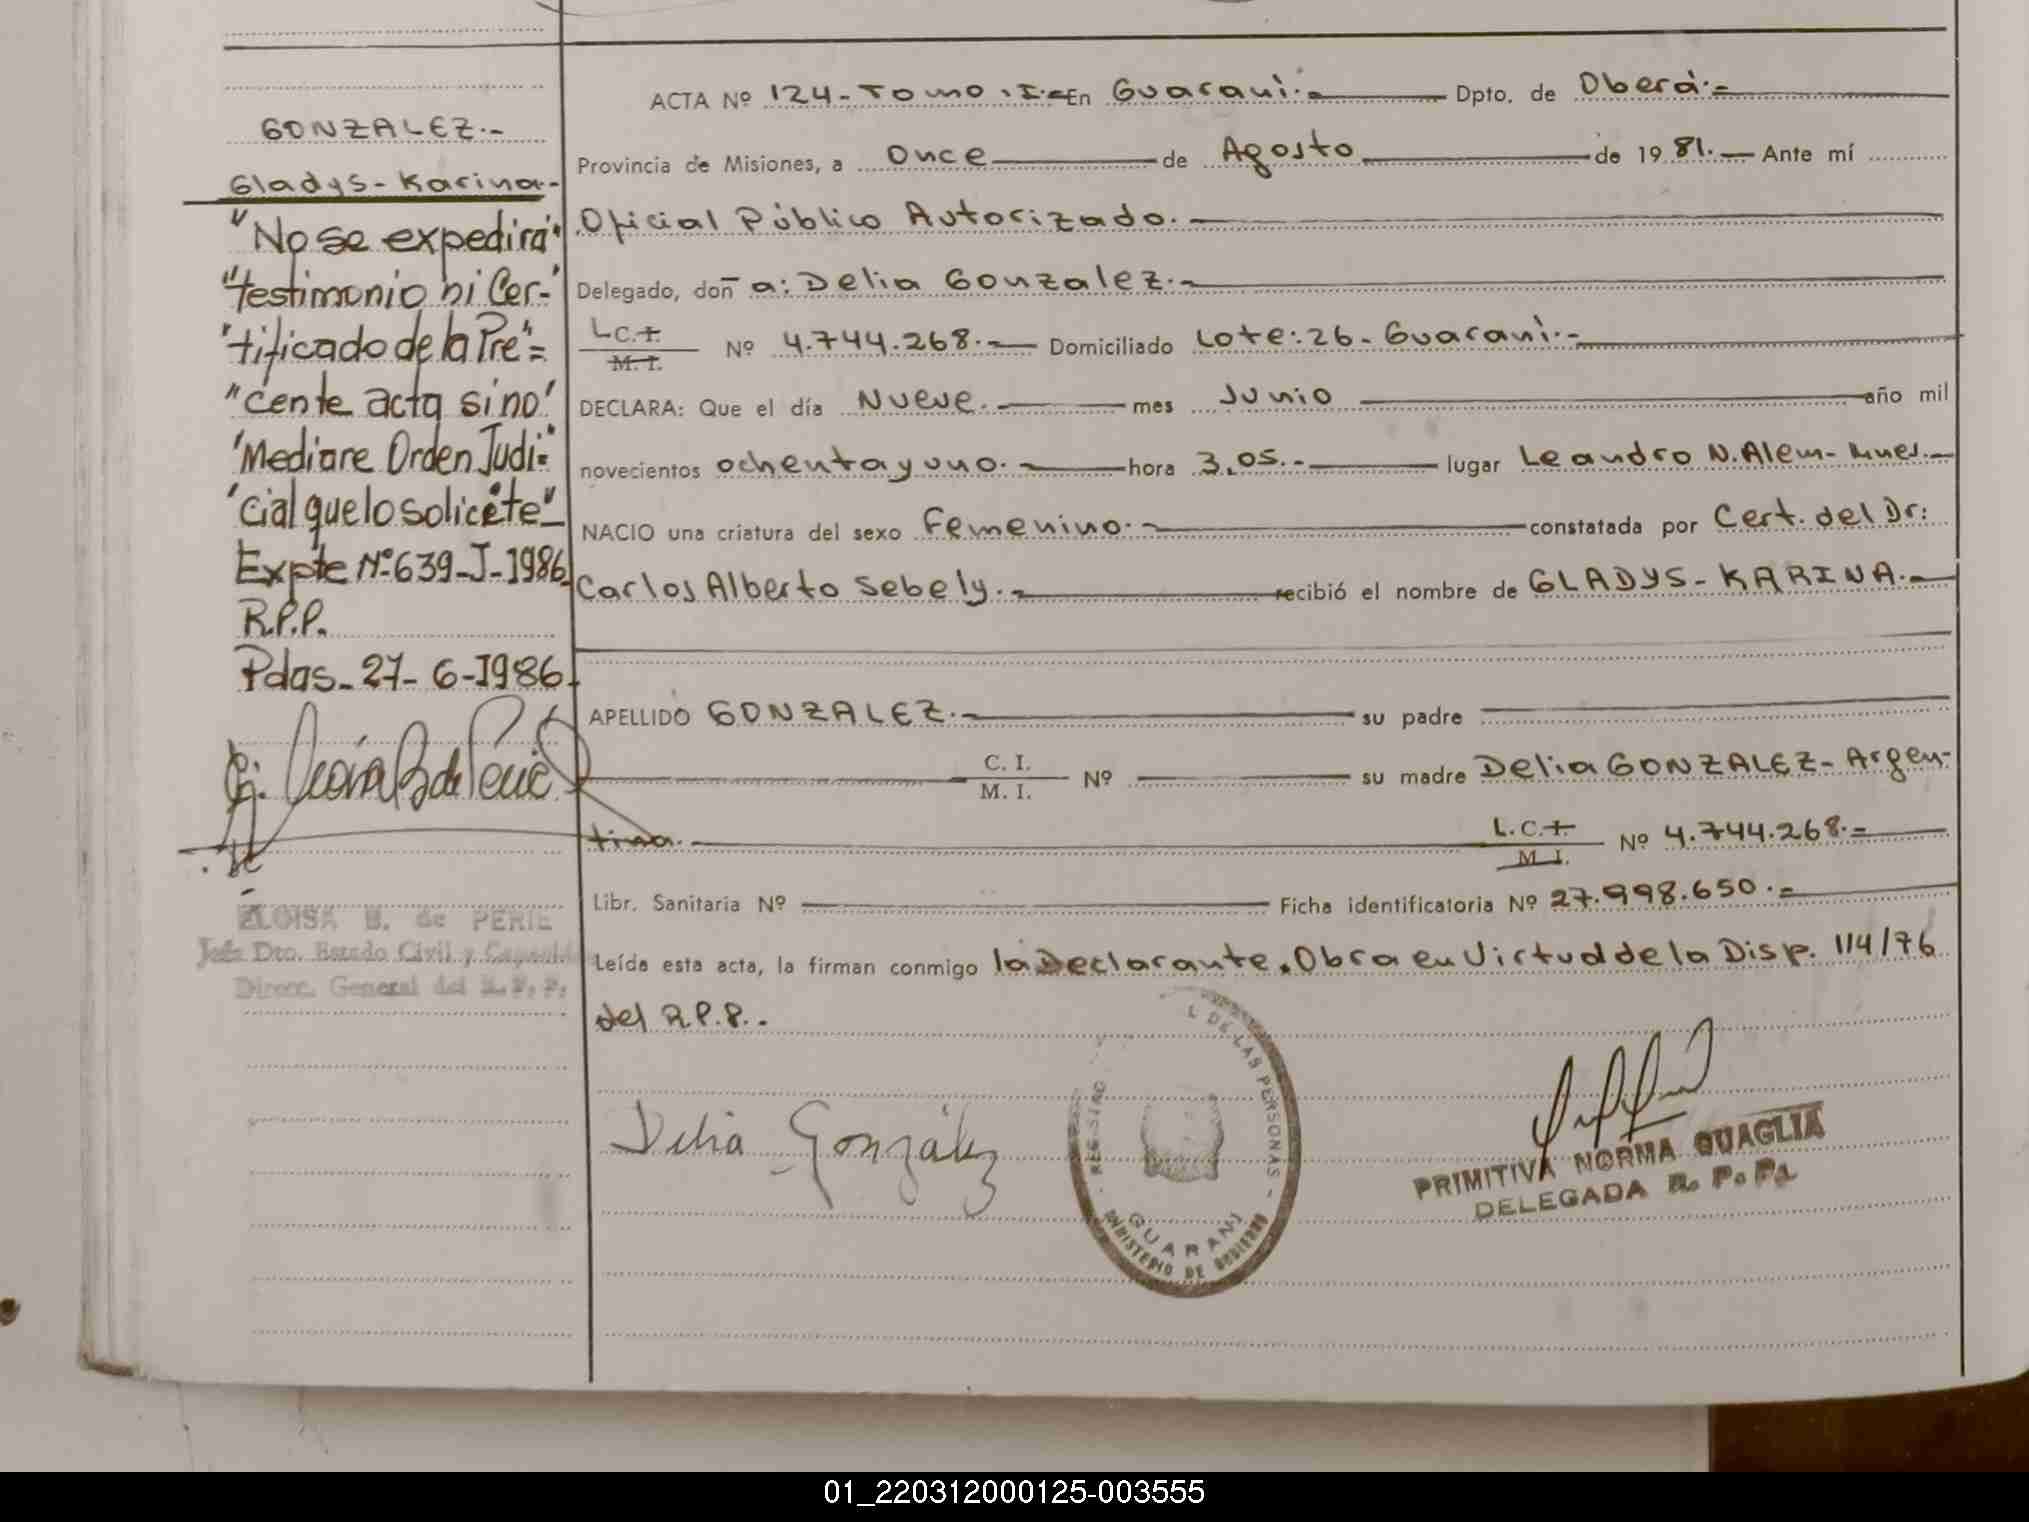 GONZALEZ.-
Gladys - Karina.-
"No se expedirá"
"testimonio ni Cer-"
"tificado de la Pre"=
"cente acta sino"
"Mediare Orden Judi="
"cial que lo solicite"_
Expte Nº 639-J-1986_
R.P.P.
Pdas_ 27- 6-1986_
ELOISA B. de PERIE
Jefe Dto. Estado Civil y
Direcc. General del R. P. P.
ACTA Nº 124-Tomo.I.- En Guaraní.- Dpto. de Oberá.-
Provincia de Misiones, a Once de Agosto de 1981.- Ante mí
Oficial Público Autorizado.-
Delegado, doña: Delia Gonzalez.-
L.C.I.
M. I.
Nº 4.744.268.- Domiciliado Lote: 26 - Guaraní.-
DECLARA: Que el día Nueve.- mes Junio año mil
novecientos ochenta y uno.- hora 3,05.- lugar Leandro N. Alem- Mnes.-
NACIO una criatura del sexo Femenino.- constatada por Cert. del Dr:
Carlos Alberto Sebely.- recibió el nombre de GLADYS - KARINA.-
APELLIDO GONZALEZ.- su padre
C. I.
M. I.
Nº su madre Delia GONZALEZ - Argen-
tina.-
L.C.I.
M. I.
Nº 4.744.268.-
Libr. Sanitaria Nº Ficha identificatoria Nº 27.998.650.-
Leída esta acta, la firman conmigo la Declarante. Obra en Virtud de la Disp. 114/76
del R.P.P..
Delia González
REGISTRO L DE LAS PERSONAS -
GUARANI
MINISTERIO DE GOBIERNO
PRIMITIVA NORMA QUAGLIA
DELEGADA R. P. P.
01_220312000125-003555